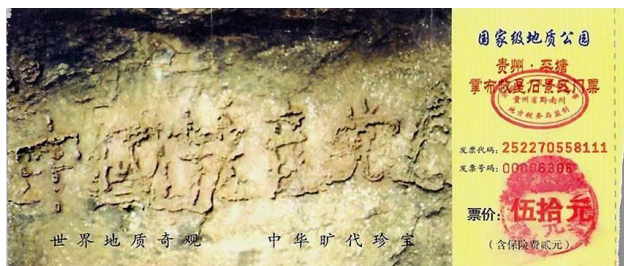 世界地质奇观 中华旷代珍宝
国家级地质公园
贵州·平塘
掌布救星石景区门票
贵州省黔南州
地方税务局监制
发票代码:252270558111
发票号码:00006306
票价:伍拾元
(含保险费贰元)